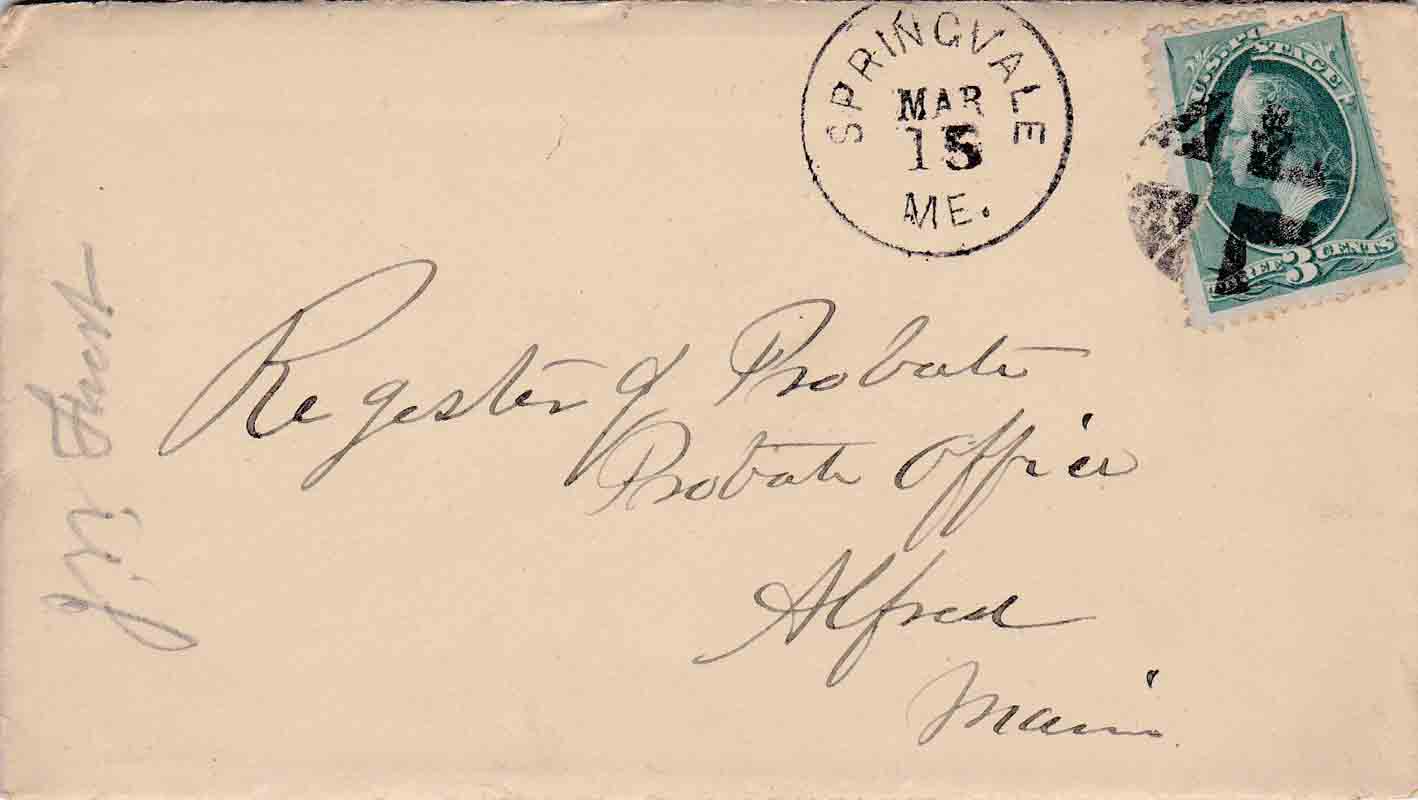 SPRINGVALE
MAR
15
ME.
U.S. POSTAGE
THREE 3 CENTS
Register of Probate
Probate Office
Alfred
Maine